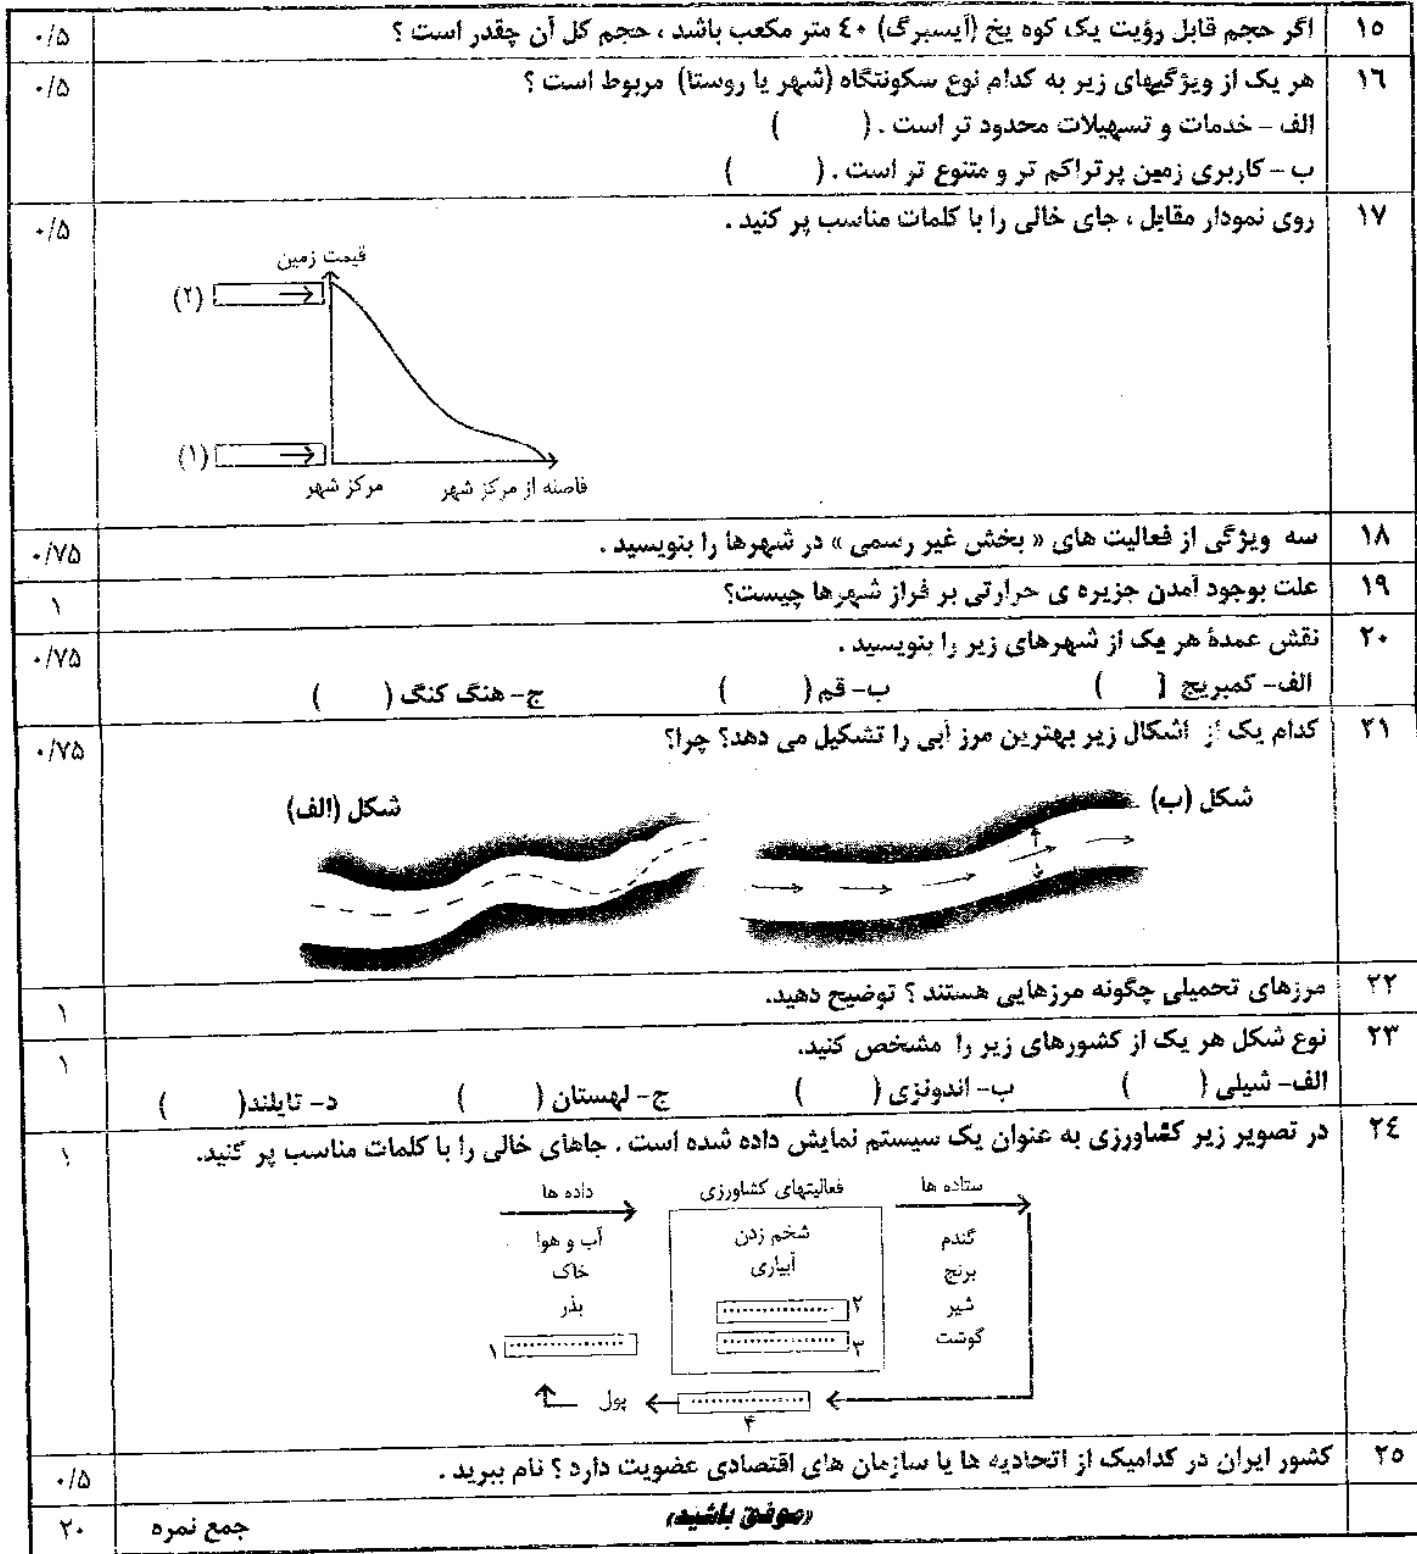 ۱۵ اگر حجم قابل رؤیت یک کوه یخ (آیسبرگ) ۴۰ متر مکعب باشد ، حجم کل آن چقدر است ؟ ۰/۵
۱۶ هر یک از ویژگیهای زیر به کدام نوع سکونتگاه (شهر یا روستا) مربوط است ؟ ۰/۵
الف – خدمات و تسهیلات محدود تر است . ( )
ب – کاربری زمین پرتراکم تر و متنوع تر است . ( )
۱۷ روی نمودار مقابل ، جای خالی را با کلمات مناسب پر کنید . ۰/۵
قیمت زمین
(۲)
(۱)
مرکز شهر
فاصله از مرکز شهر
۱۸ سه ویژگی از فعالیت های « بخش غیر رسمی » در شهرها را بنویسید . ۰/۷۵
۱۹ علت بوجود آمدن جزیره ی حرارتی بر فراز شهرها چیست؟ ۱
۲۰ نقش عمدهٔ هر یک از شهرهای زیر را بنویسید . ۰/۷۵
الف- کمبریج ( ) ب- قم ( ) ج- هنگ کنگ ( )
۲۱ کدام یک از اشکال زیر بهترین مرز آبی را تشکیل می دهد؟ چرا؟ ۰/۷۵
شکل (ب)
شکل (الف)
۲۲ مرزهای تحمیلی چگونه مرزهایی هستند ؟ توضیح دهید. ۱
۲۳ نوع شکل هر یک از کشورهای زیر را مشخص کنید. ۱
الف- شیلی ( ) ب- اندونزی ( ) ج- لهستان ( ) د- تایلند( )
۲۴ در تصویر زیر کشاورزی به عنوان یک سیستم نمایش داده شده است . جاهای خالی را با کلمات مناسب پر کنید. ۱
ستاده ها فعالیتهای کشاورزی داده ها
گندم شخم زدن آب و هوا
برنج آبیاری خاک
شیر ۲ .................. بذر
گوشت ۳ .................. ۱ ..................
.................. پول
۴
۲۵ کشور ایران در کدامیک از اتحادیه ها یا سازمان های اقتصادی عضویت دارد ؟ نام ببرید . ۰/۵
«موفق باشید»
جمع نمره ۲۰